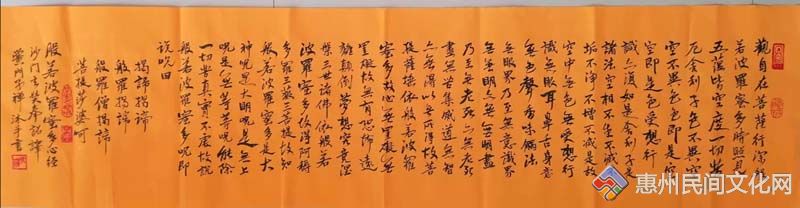 觀自在菩薩行深般
若波羅蜜多時照見
五蘊皆空度一切苦
厄舍利子色不異空
空不異色色即是空
空即是色受想行
識亦復如是舍利子是
諸法空相不生不滅
垢不淨不增不減是故
空中無色無受想行
識無眼耳鼻舌身意
無色聲香味觸法
無眼界乃至無意識界
無無明亦無無明盡
乃至無老死亦無老死
盡無苦集滅道無智
亦無得以無所得故菩
提薩埵依般若波羅
蜜多故心無罣礙無
罣礙故無有恐怖遠
離顛倒夢想究竟涅
槃三世諸佛依般若
波羅蜜多故得阿耨
多羅三藐三菩提故知
般若波羅蜜多是大
神咒是大明咒是無上
咒是無等等咒能除
一切苦真實不虛故說
般若波羅蜜多咒即
說咒曰
揭諦揭諦
般羅揭諦
般羅僧揭諦
菩提沙婆訶
般若波羅蜜多心經
沙門玄奘奉詔譯
門子禪沐手書
惠州民间文化网